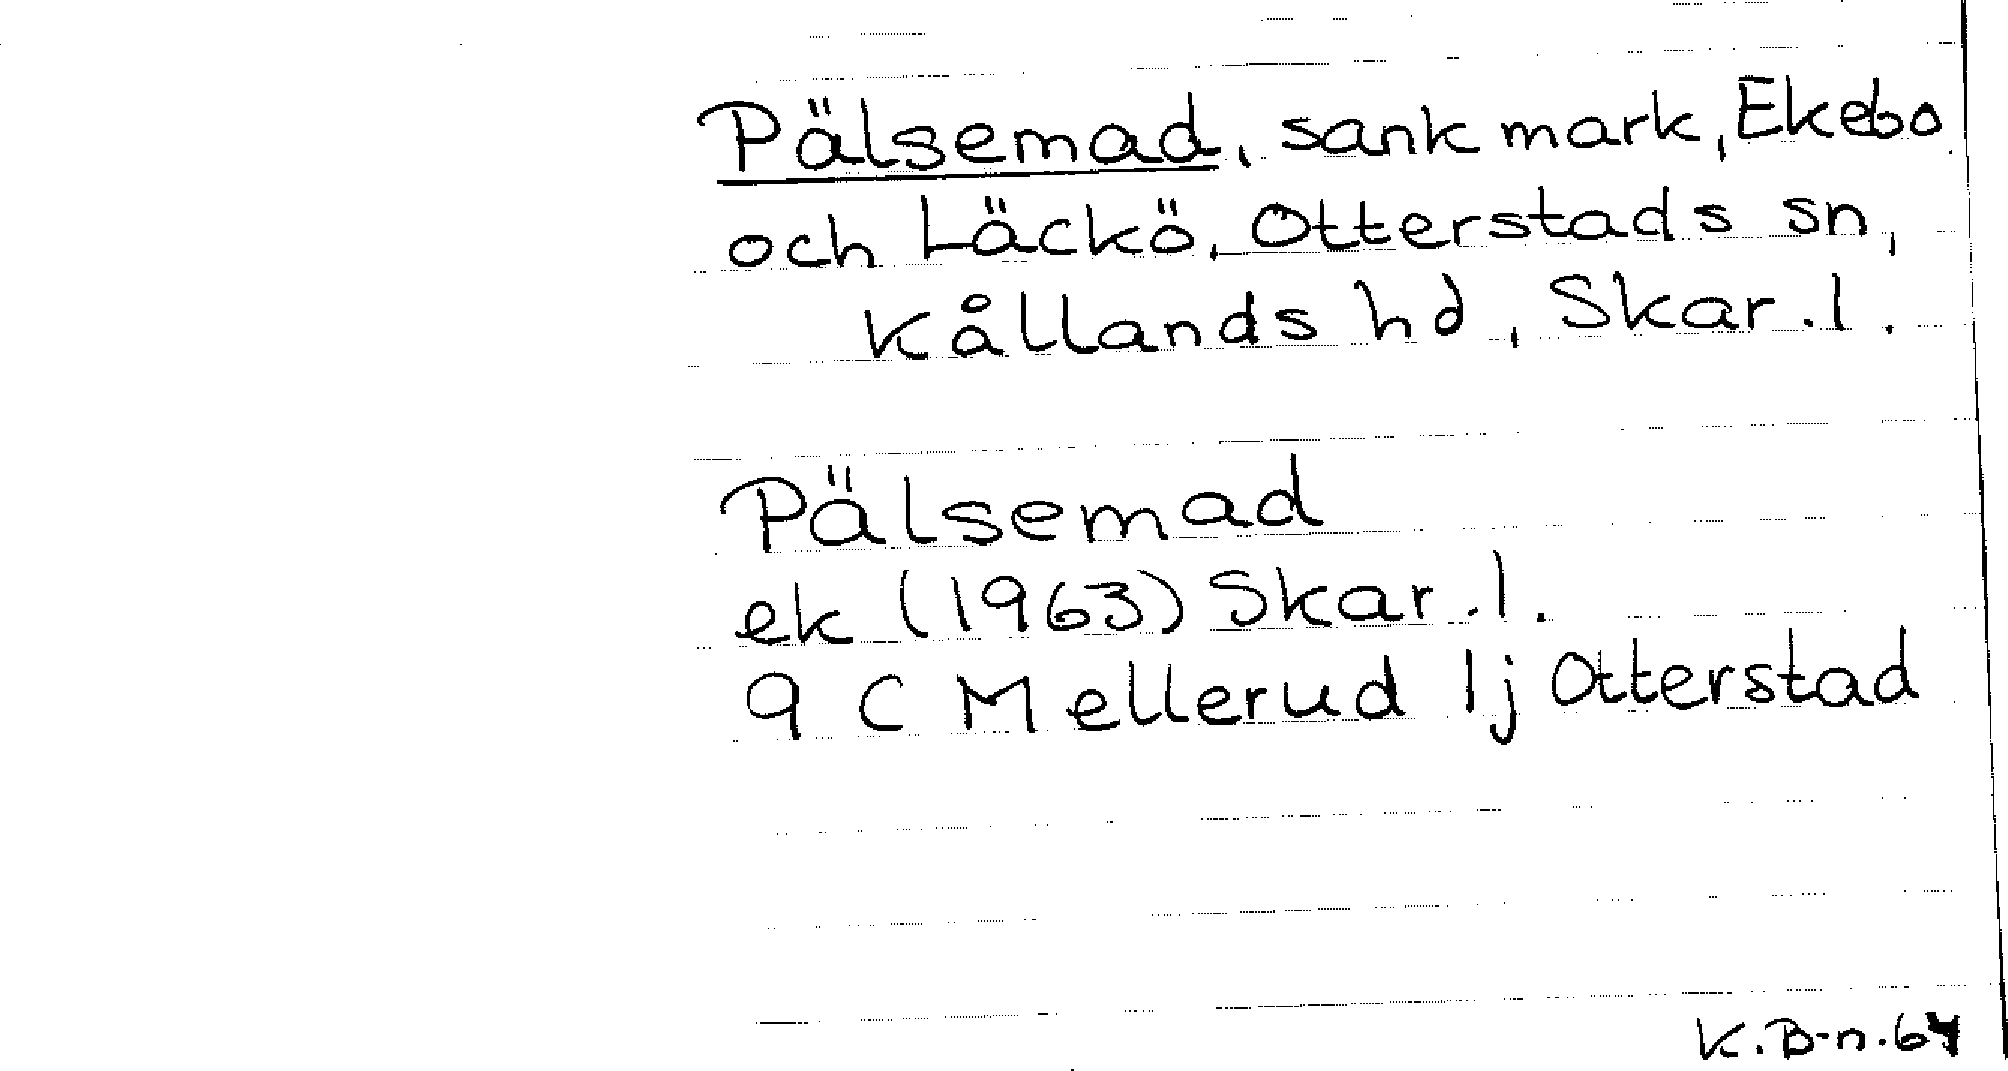 Pälsemad, sank mark, Ekebo
och Läckö, Otterstads sn,
Kållands hd, Skar.l.
Pälsemad
ek (1963) Skar.l.
9 C Mellerud 1j Otterstad
K.B-n.64